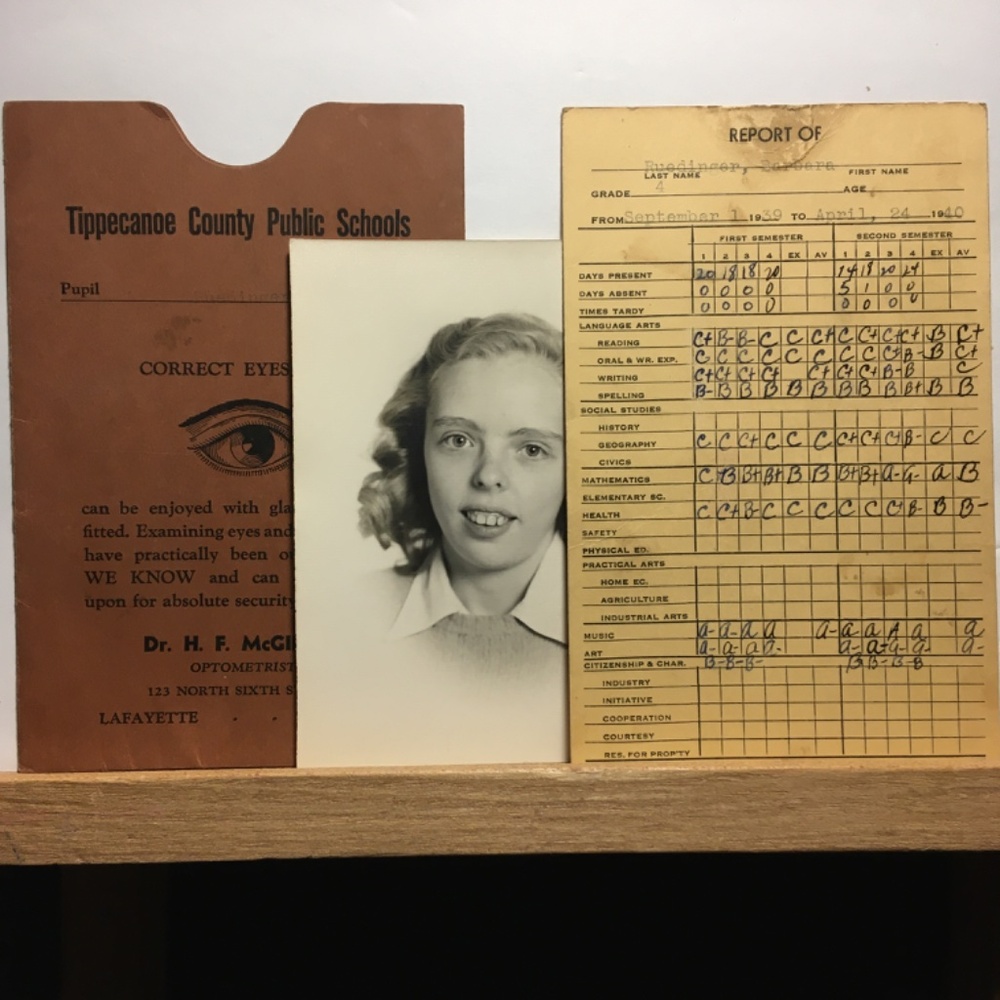 Tippecanoe County Public Schools
Pupil
CORRECT EYES
can be enjoyed with gla
fitted. Examining eyes and
have practically been o
WE KNOW and can
upon for absolute security
Dr. H. F. McGl
OPTOMETRIST
123 NORTH SIXTH S
LAFAYETTE . .
REPORT OF
Ruedinger, Barbara
LAST NAME FIRST NAME
GRADE 4 AGE
FROM September 1 1939 TO April, 24 1940
FIRST SEMESTER SECOND SEMESTER
1 2 3 4 EX AV 1 2 3 4 EX AV
DAYS PRESENT 20 18 18 20 14 18 20 24
DAYS ABSENT 0 0 0 0 5 1 0 0
TIMES TARDY 0 0 0 0 0 0 0 0
LANGUAGE ARTS
READING C+ B- B- C C C+ C C+ C+ C+ B C+
ORAL & WR. EXP. C C C C C C C C C+ B- B C+
WRITING C+ C+ C+ C+ C+ C+ C+ B- B C
SPELLING B- B B B B B B B B B+ B B
SOCIAL STUDIES
HISTORY
GEOGRAPHY C C C+ C C C C+ C+ C+ B- C C
CIVICS
MATHEMATICS C B B+ B+ B B B+ B+ a- a- a B
ELEMENTARY SC.
HEALTH C C+ B- C C C C C C+ B- B B-
SAFETY
PHYSICAL ED.
PRACTICAL ARTS
HOME EC.
AGRICULTURE
INDUSTRIAL ARTS
MUSIC a- a- a a a- a a A a a
ART a- a a a- a- a- a- a- a-
CITIZENSHIP & CHAR. B- B- B- B B- B- B
INDUSTRY
INITIATIVE
COOPERATION
COURTESY
RES. FOR PROP'TY